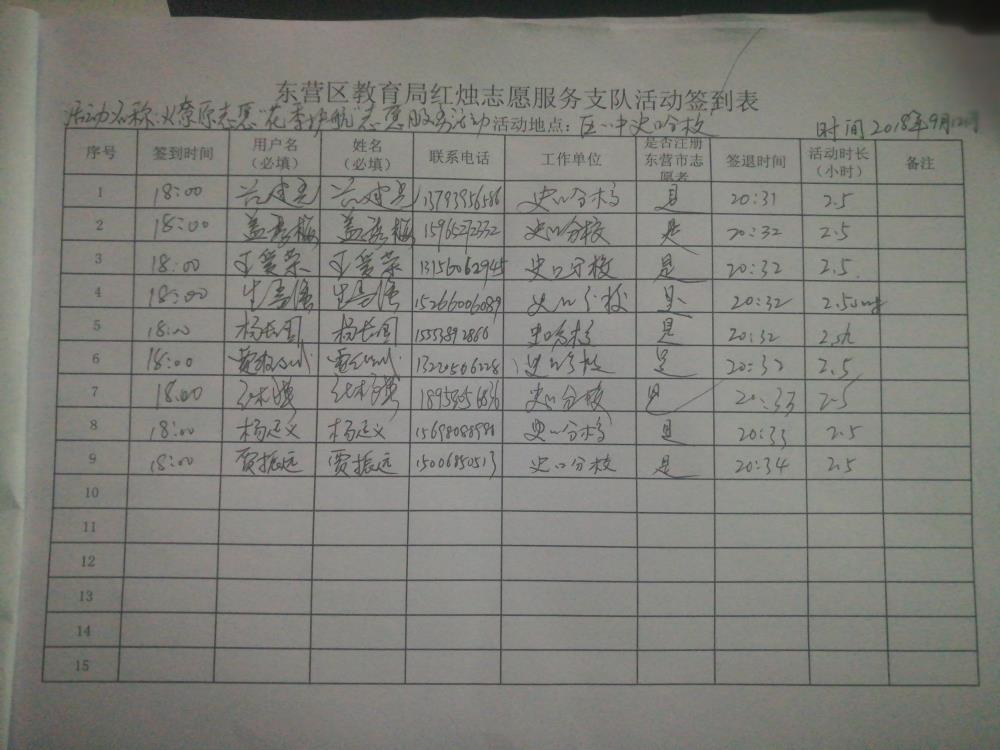 东营区教育局红烛志愿服务支队活动签到表
活动名称:火燎原志愿"花季护航"志愿服务活动 活动地点：区一中史口分校 时间 2018年9月12日
序号 签到时间 用户名（必填） 姓名（必填） 联系电话 工作单位 是否注册东营市志愿者 签退时间 活动时长（小时） 备注
1 18:00 13793956586 史口分校 是 20:31 2.5
2 18:00 盖秀梅 盖秀梅 15965272332 史口分校 是 20:32 2.5
3 18:00 王爱荣 王爱荣 13156062945 史口分校 是 20:32 2.5
4 18:00 15266006089 史口分校 是 20:32
5 18:00 杨长国 杨长国 史口分校 是 20:32 2.5h
6 18:00 13220506228 史口分校 是 20:32 2.5
7 18:00 史口分校 是 20:33 2.5
8 18:00 杨正义 杨正义 15698088988 史口分校 是 20:33 2.5
9 18:00 贾振远 贾振远 15006850513 史口分校 是 20:34 2.5
10
11
12
13
14
15